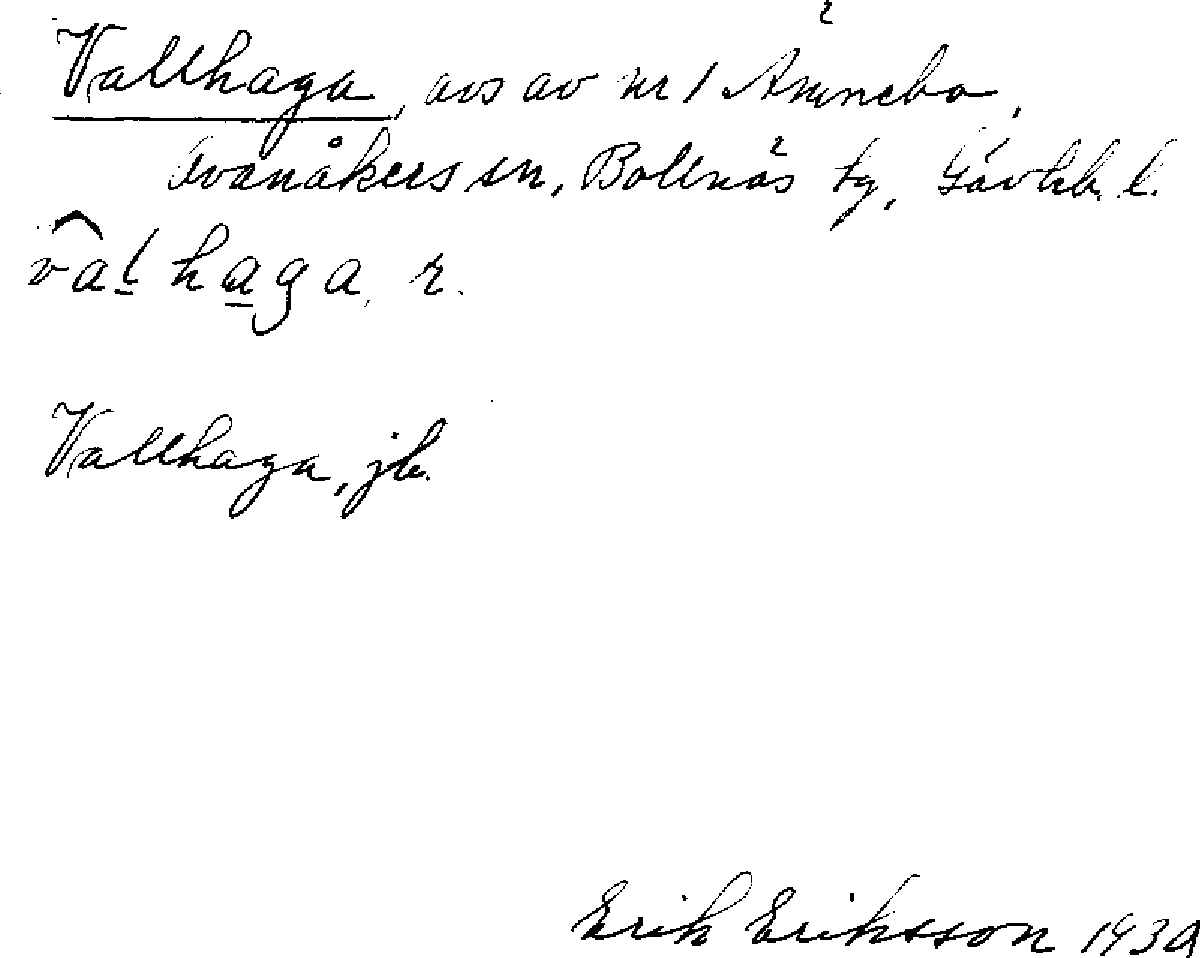 Vallhaga, avs av nr 1 Ämnebo,
Ovanåkers sn, Bollnäs tg, Gävleb. l.
va̲l̲ha̲ga, r.
Vallhaga, jb.
Erik Eriksson 1939